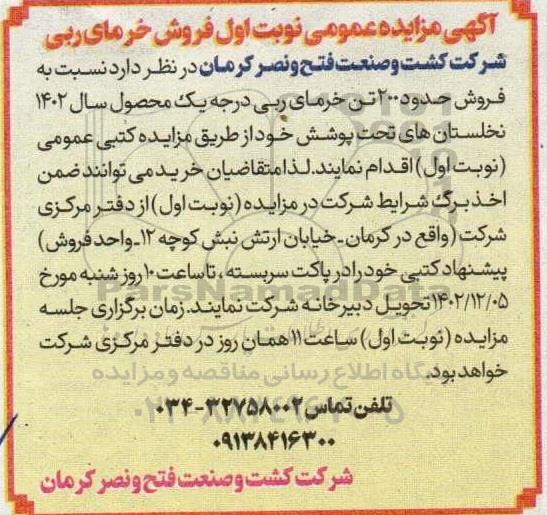 آگهی مزایده عمومی نوبت اول فروش خرمای ربی
شرکت کشت و صنعت فتح و نصر کرمان در نظر دارد نسبت به
فروش حدود ۲۰۰ تن خرمای ربی درجه یک محصول سال ۱۴۰۲
نخلستان های تحت پوشش خود از طریق مزایده کتبی عمومی
(نوبت اول) اقدام نمایند. لذا متقاضیان خرید می توانند ضمن
اخذ برگ شرایط شرکت در مزایده (نوبت اول) از دفتر مرکزی
شرکت (واقع در کرمان - خیابان ارتش نبش کوچه ۱۲ - واحد فروش)
پیشنهاد کتبی خود را در پاکت سربسته، تا ساعت ۱۰ روز شنبه مورخ
۱۴۰۲/۱۲/۰۵ تحویل دبیرخانه شرکت نمایند. زمان برگزاری جلسه
مزایده (نوبت اول) ساعت ۱۱ همان روز در دفتر مرکزی شرکت
خواهد بود.
تلفن تماس ۳۲۷۵۸۰۰۲-۰۳۴
۰۹۱۳۸۴۱۶۳۰۰
شرکت کشت و صنعت فتح و نصر کرمان
ParsNamadData
پایگاه اطلاع رسانی مناقصه و مزایده